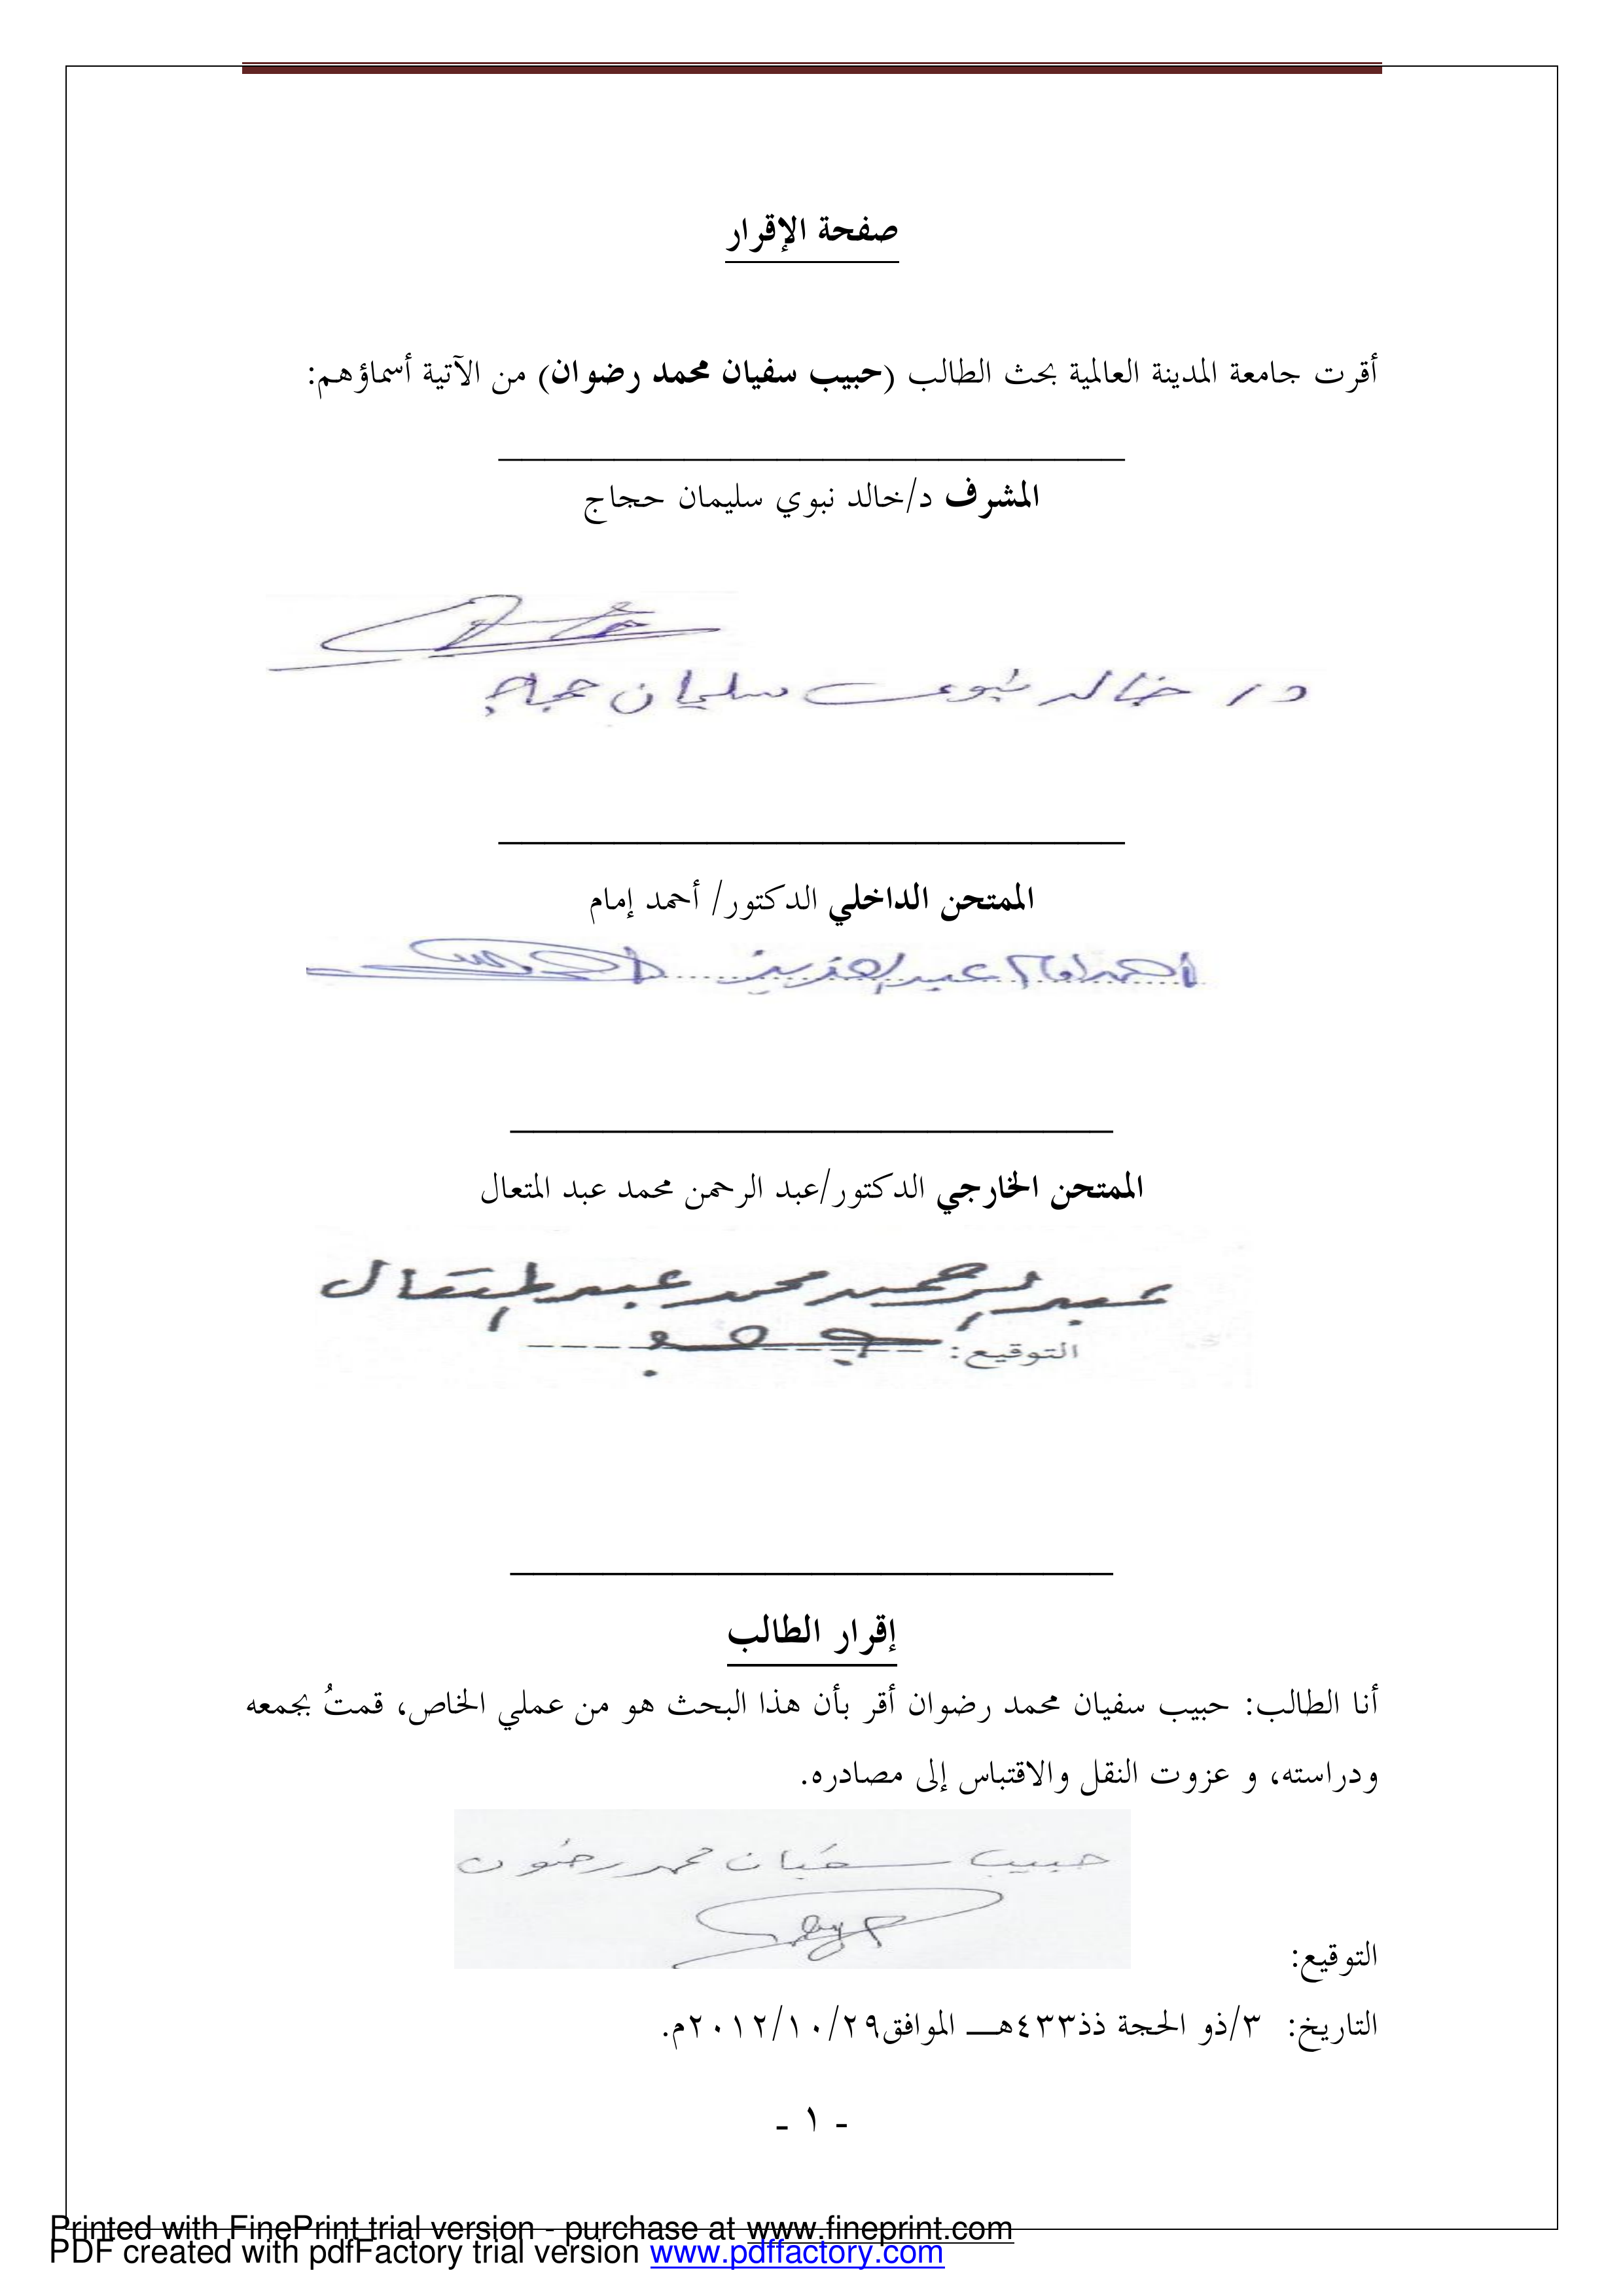 صفحة الإقرار
أقرت جامعة المدينة العالمية بحث الطالب (حبيب سفيان محمد رضوان) من الآتية أسماؤهم:
المشرف د/خالد نبوي سليمان حجاج
د/ خالد نبوي سليمان حجاج
الممتحن الداخلي الدكتور/ أحمد إمام
أحمد إمام عبد العزيز
الممتحن الخارجي الدكتور/عبد الرحمن محمد عبد المتعال
عبد الرحمن محمد عبد المتعال
التوقيع:
إقرار الطالب
أنا الطالب: حبيب سفيان محمد رضوان أقر بأن هذا البحث هو من عملي الخاص، قمتُ بجمعه
ودراسته، و عزوت النقل والاقتباس إلى مصادره.
حبيب سفيان محمد رضون
التوقيع:
التاريخ: ٣/ذو الحجة ذذ٤٣٣هـــ الموافق٢٠١٢/١٠/٢٩م.
- ١ -
Printed with FinePrint trial version - purchase at www.fineprint.com
PDF created with pdfFactory trial version www.pdffactory.com